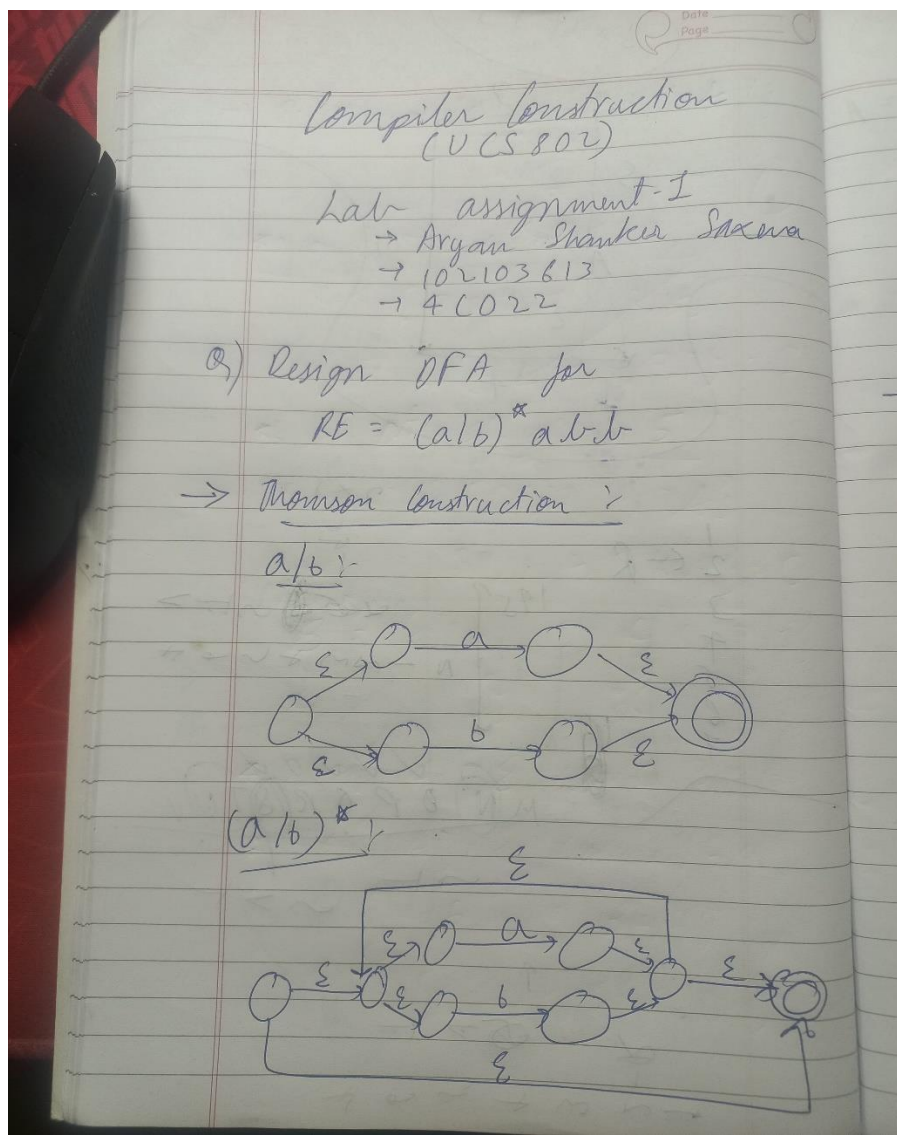 Date
Page
Compiler Construction
(UCS802)
Lab assignment-I
→ Aryan Shanker Saxena
→ 102103613
→ 4CO22
Q) Design DFA for
RE = (a/b)* abb
→ Thomson Construction :-
a/b :-
a
ε ε
b
ε ε
(a/b)* :-
ε
a
ε ε
ε ε
ε b ε
ε